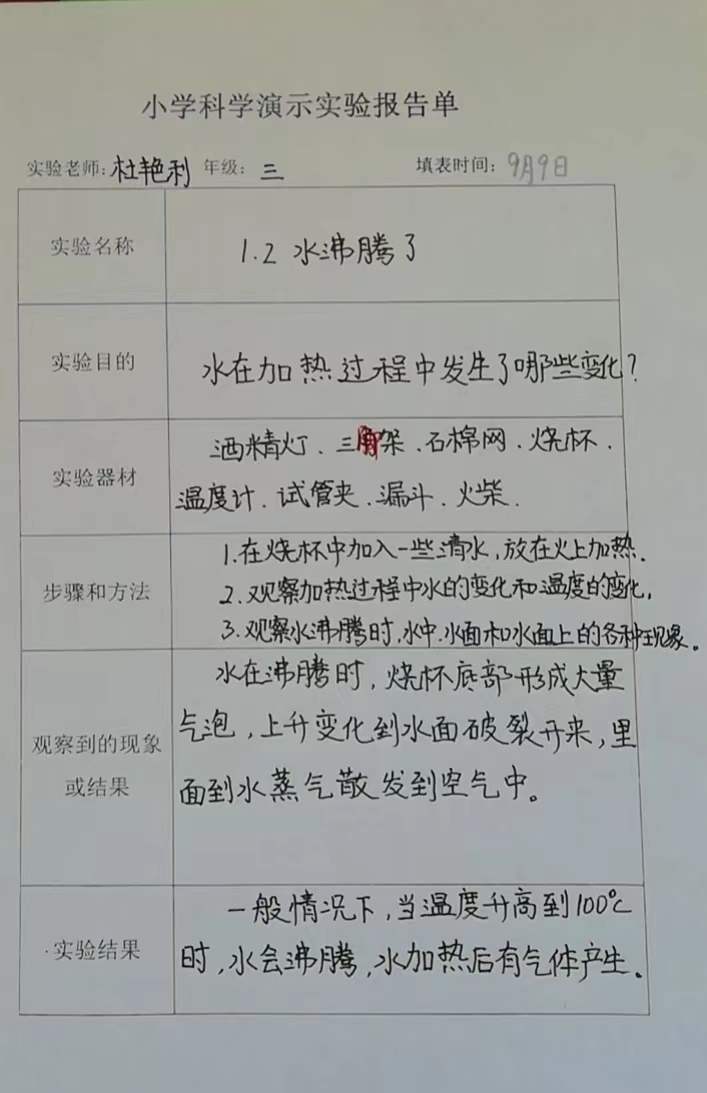 小学科学演示实验报告单
实验老师：杜艳利 年级：三 填表时间：9月9日
实验名称
1.2 水沸腾了
实验目的
水在加热过程中发生了哪些变化？
实验器材
酒精灯、三角架、石棉网、烧杯、
温度计、试管夹、漏斗、火柴.
步骤和方法
1.在烧杯中加入一些清水，放在火上加热.
2.观察加热过程中水的变化和温度的变化，
3.观察水沸腾时，水中、水面和水面上的各种现象。
观察到的现象
或结果
水在沸腾时，烧杯底部形成大量
气泡，上升变化到水面破裂开来，里
面到水蒸气散发到空气中。
实验结果
一般情况下，当温度升高到100℃
时，水会沸腾，水加热后有气体产生。